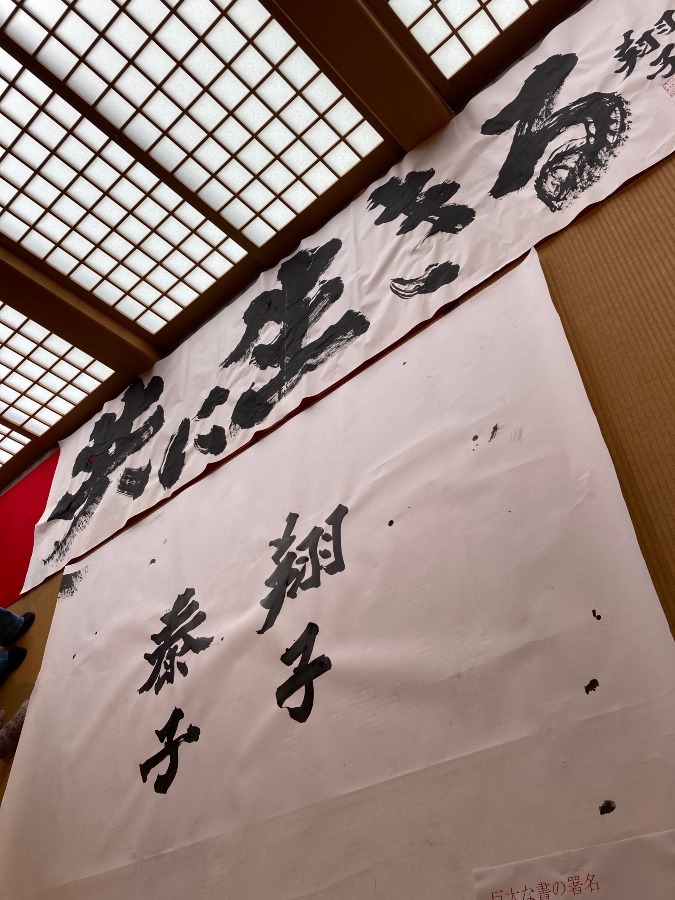 共に生きる
翔子
翔子
泰子
巨大な書の署名